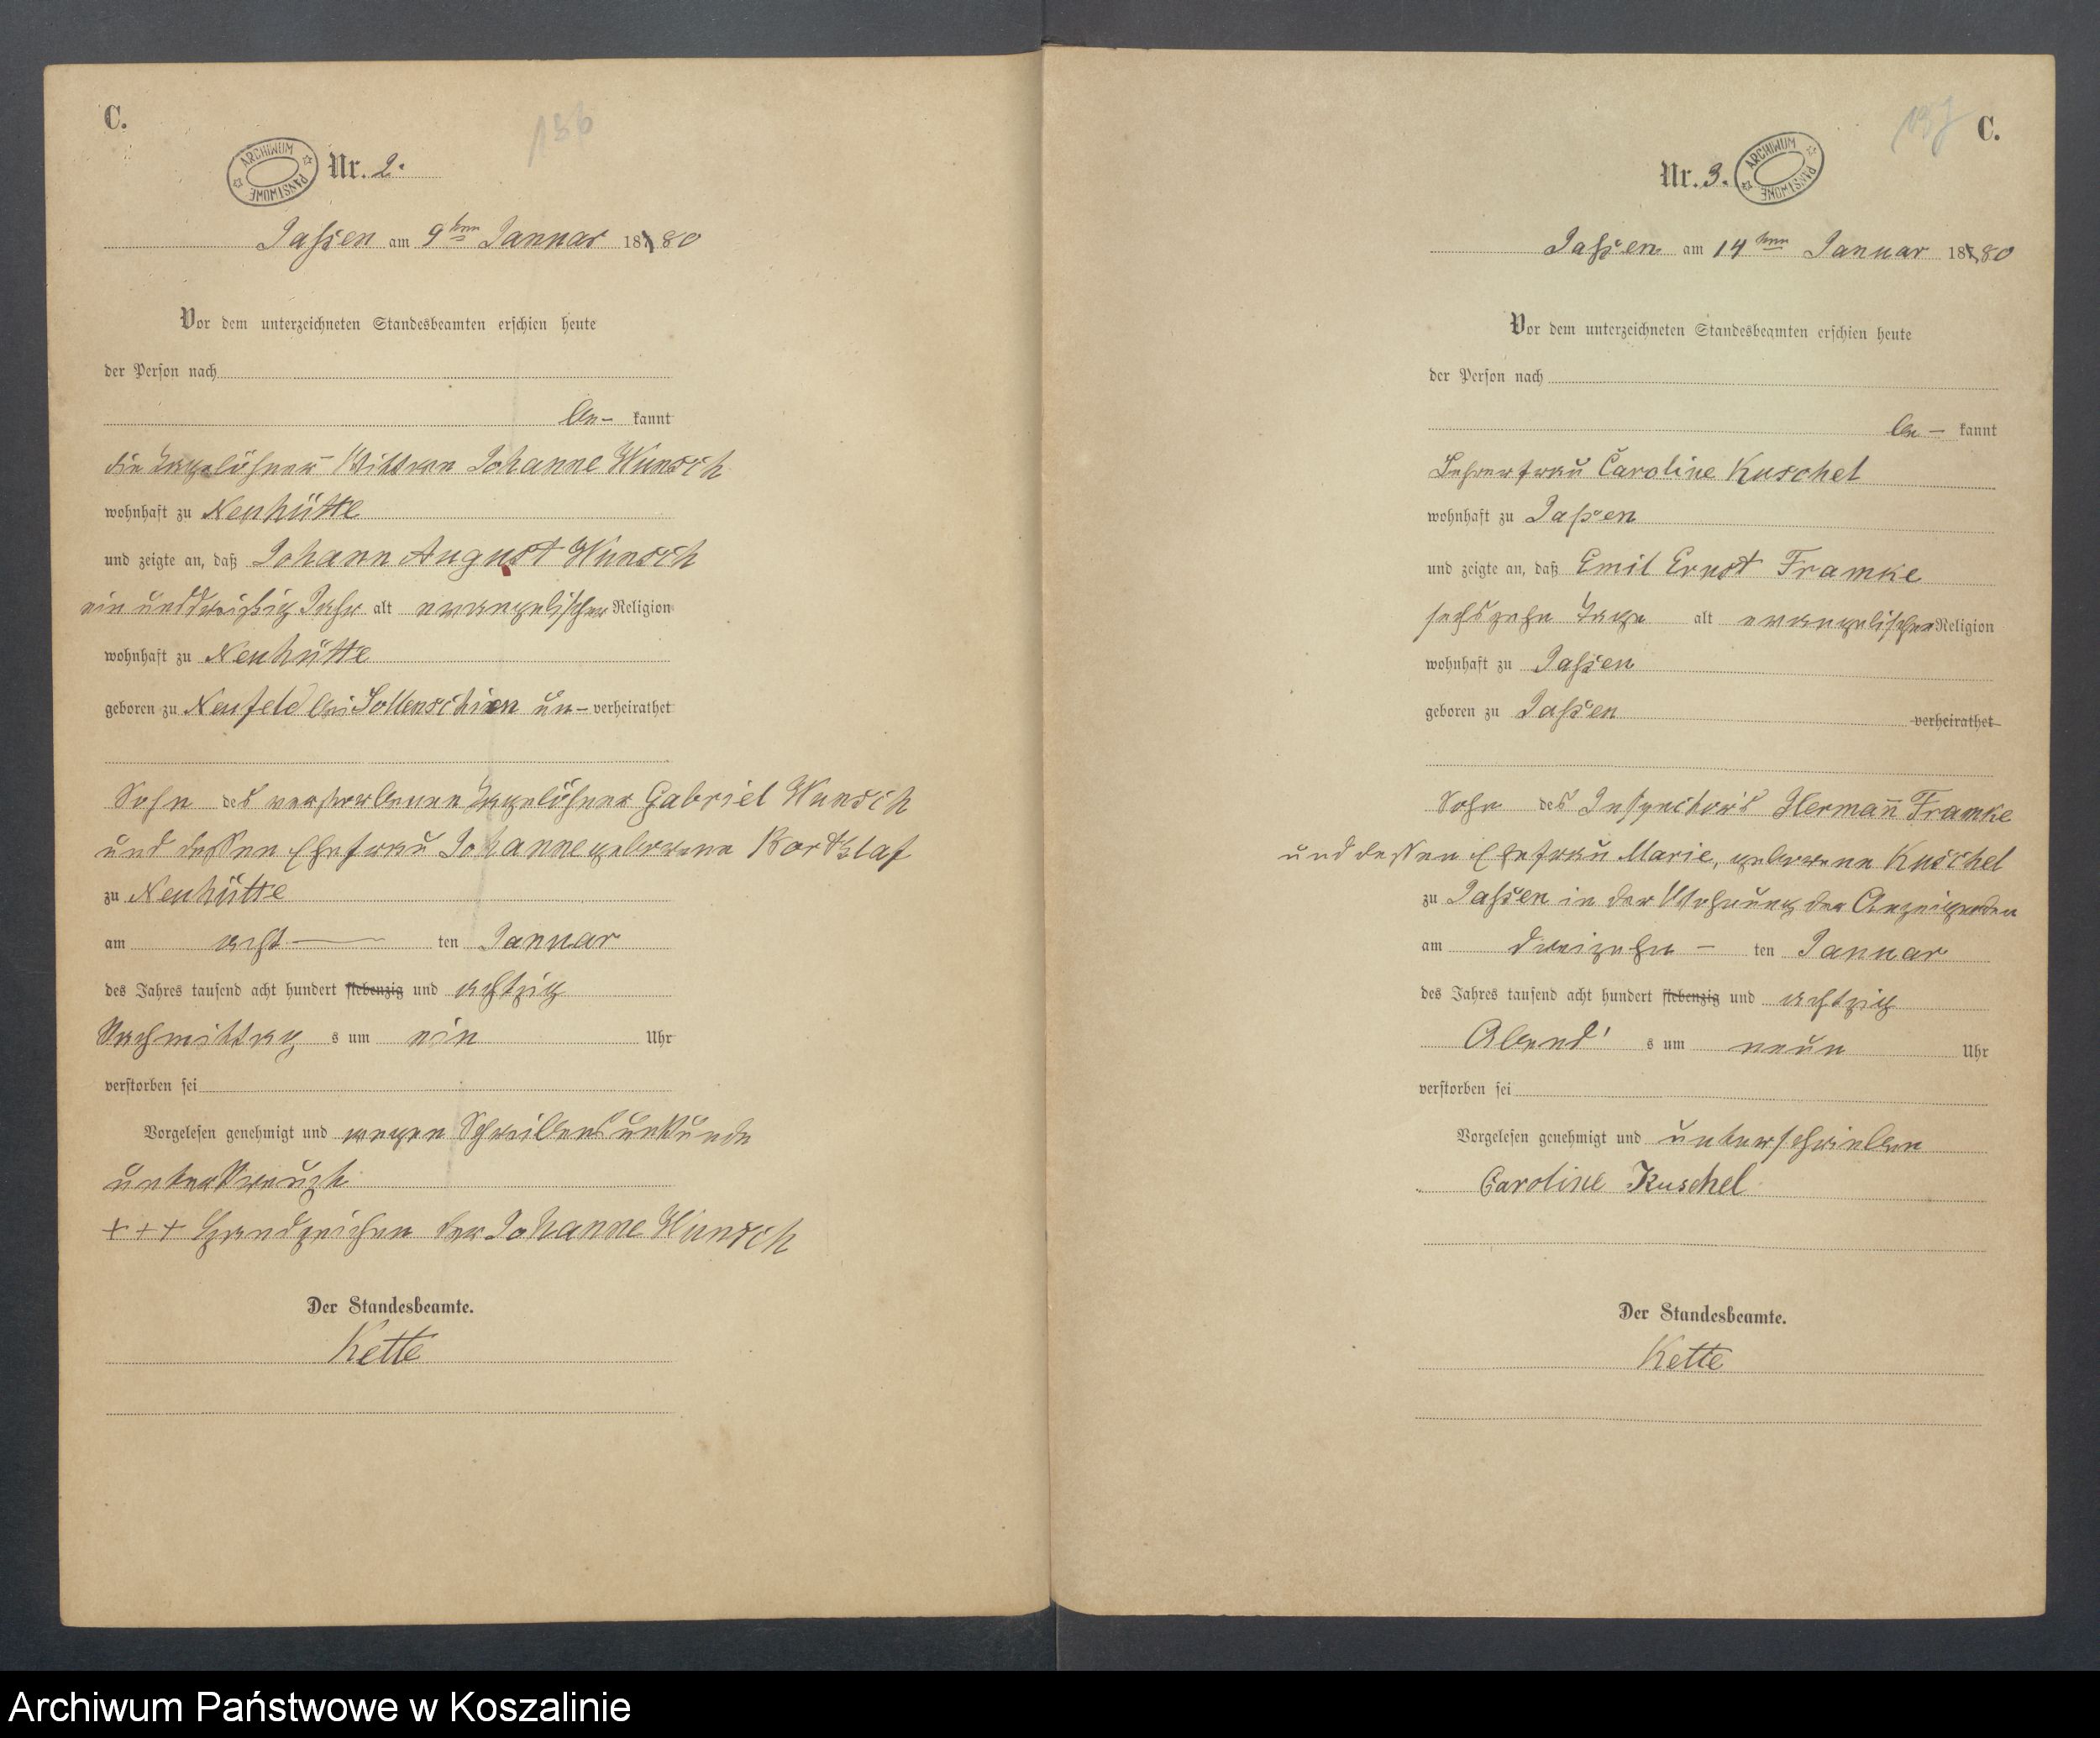 C.
136
Nr. 2.
ARCHIWUM PAŃSTWOWE
Jassen am 9ten Januar 1880
Vor dem unterzeichneten Standesbeamten erschien heute
der Person nach
be- kannt
die Tagelöhner Wittwe Johanne Wunsch
wohnhaft zu Neuhütte
und zeigte an, daß Johann August Wunsch
ein und dreißig Jahr alt evangelischer Religion
wohnhaft zu Neuhütte
geboren zu Neufeld bei Sollenschin un- verheirathet
Sohn des verstorbenen Tagelöhner Gabriel Wunsch
und dessen Ehefrau Johanne geborene Bortzlaf
zu Neuhütte
am acht ten Januar
des Jahres tausend acht hundert siebenzig und achtzig
Nachmittag s um ein Uhr
verstorben sei
Vorgelesen genehmigt und wegen Schreibensunkunde
unterkreuzt
+++ Handzeichen der Johanne Wunsch
Der Standesbeamte.
Kette
137
C.
Nr. 3.
ARCHIWUM PAŃSTWOWE
Jassen am 14ten Januar 1880
Vor dem unterzeichneten Standesbeamten erschien heute
der Person nach
be- kannt
Lehrerfrau Caroline Kuschel
wohnhaft zu Jassen
und zeigte an, daß Emil Ernst Framke
sechszehn Tage alt evangelischer Religion
wohnhaft zu Jassen
geboren zu Jassen verheirathet
Sohn des Inspectors Hermann Framke
und dessen Ehefrau Marie, geborene Kuschel
zu Jassen in der Wohnung der Anzeigenden
am dreizehn - ten Januar
des Jahres tausend acht hundert siebenzig und achtzig
Abend s um neun Uhr
verstorben sei
Vorgelesen genehmigt und unterschrieben
Caroline Kuschel
Der Standesbeamte.
Kette
Archiwum Państwowe w Koszalinie